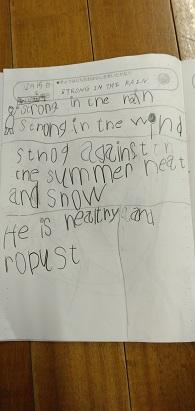 STRONG IN THE RAIN
strong in the rain
strong in the wind
stnog against
the summer heat
and snow
He is healthy and
ropust